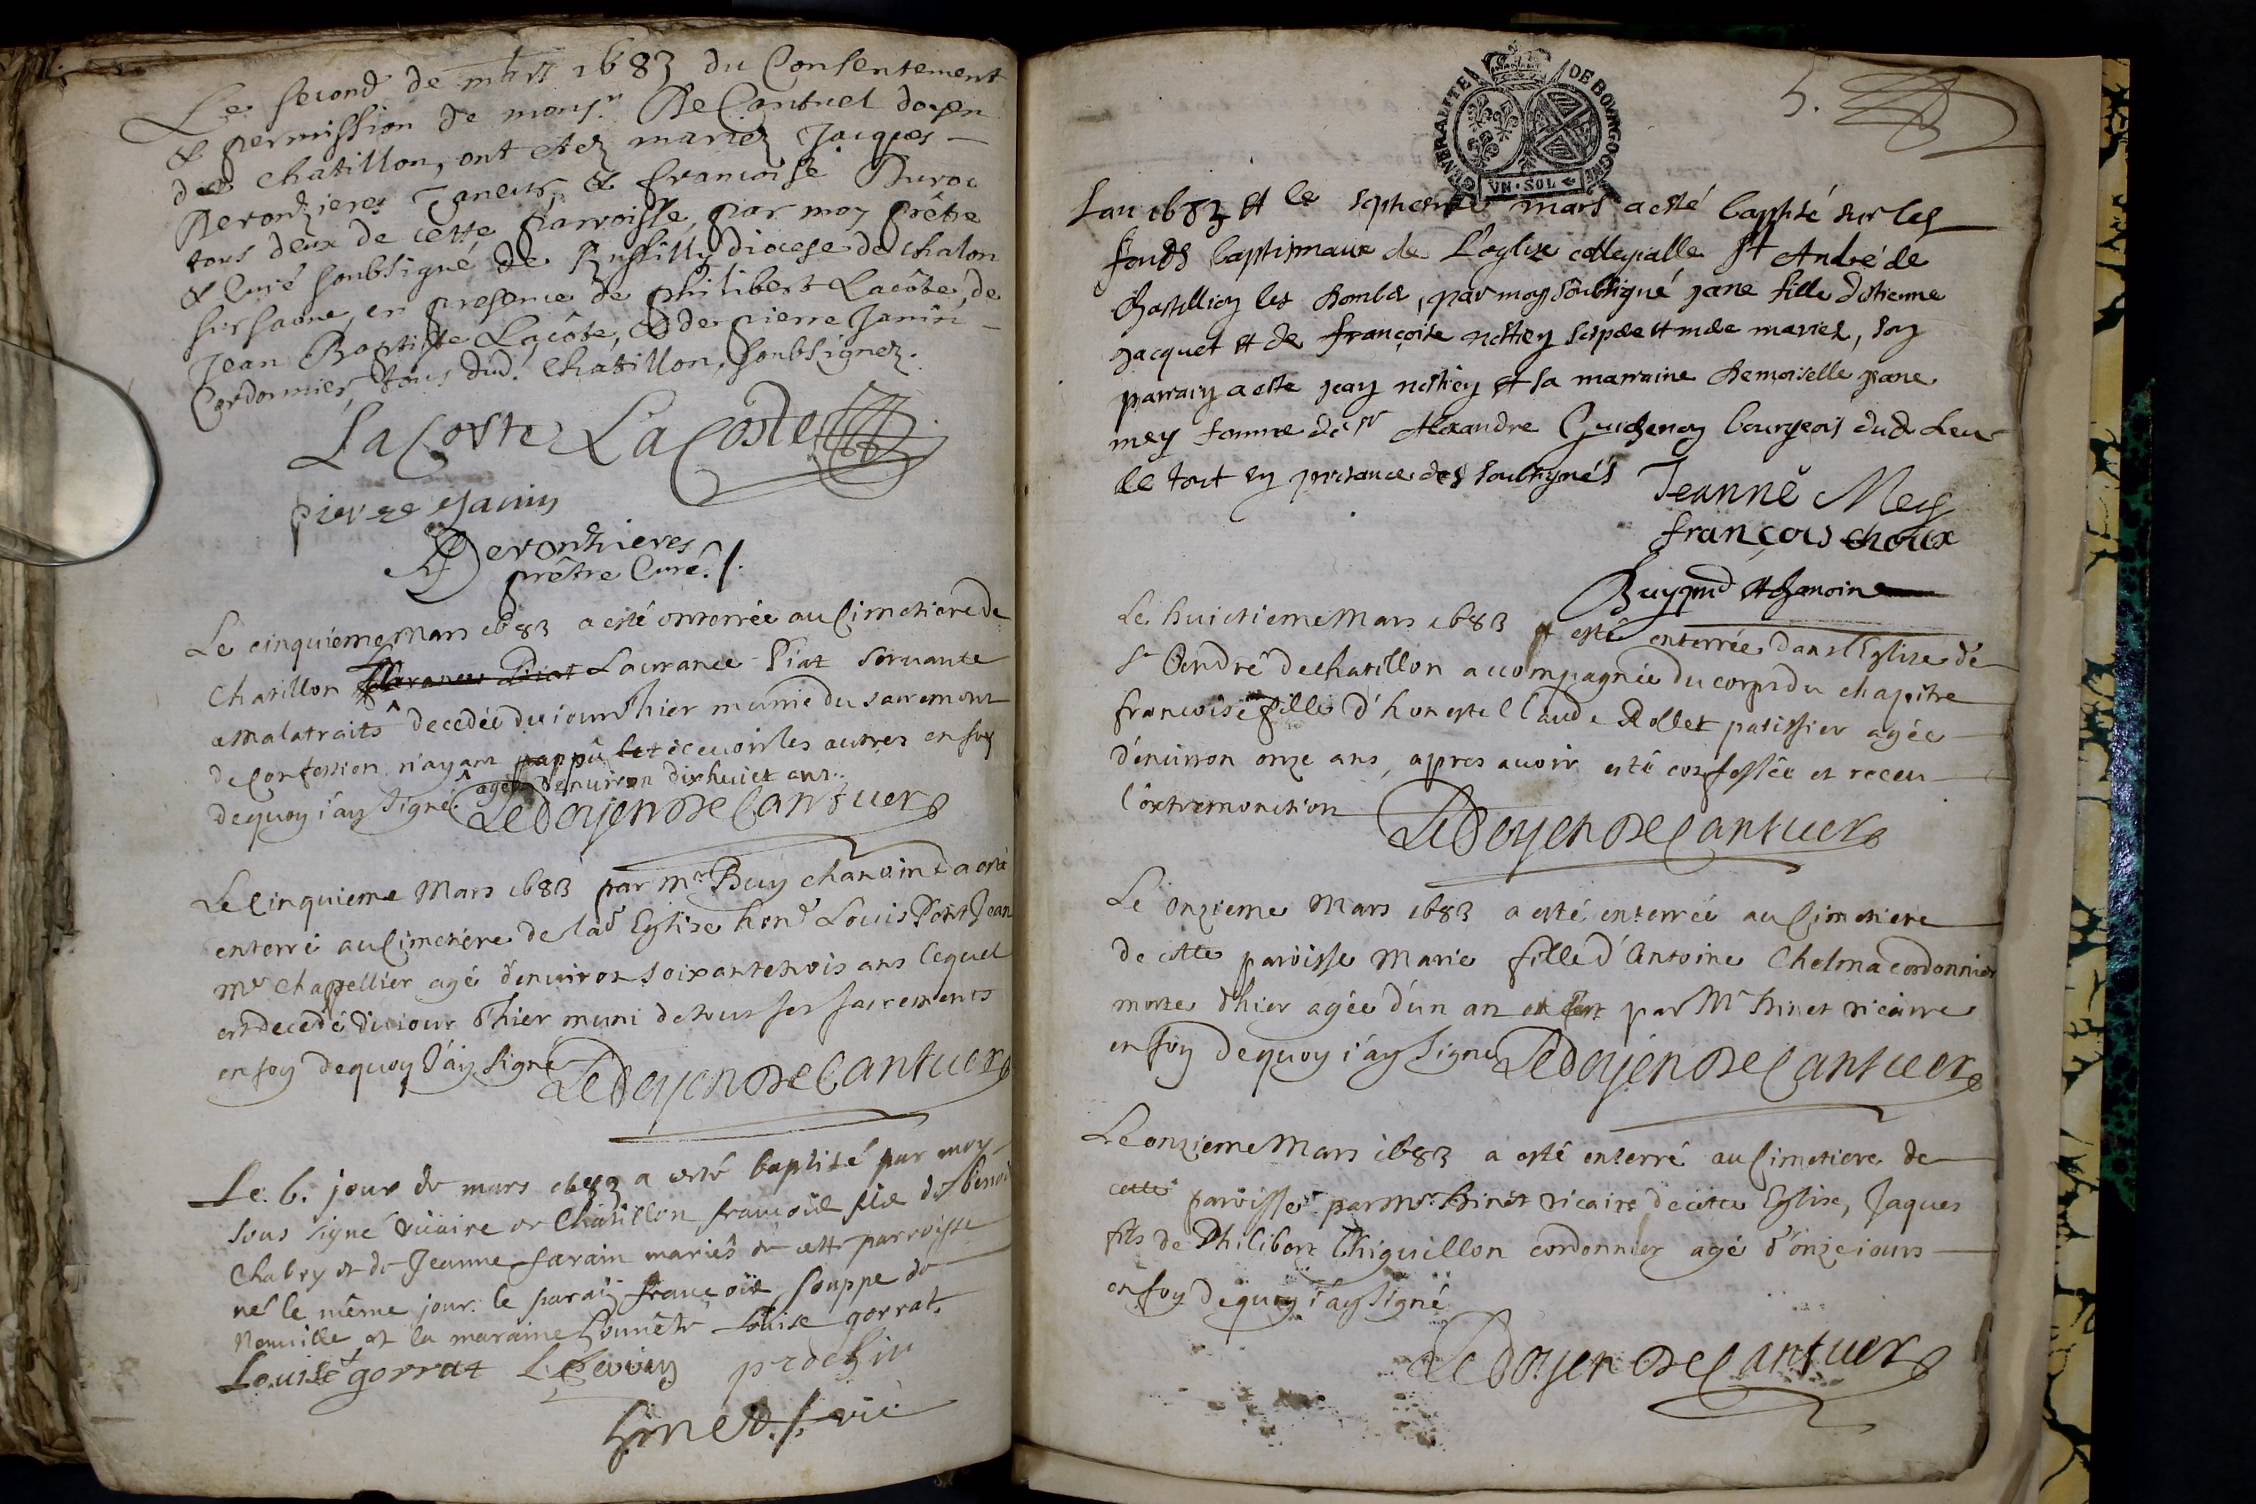 Le second de mars 1683 du Consentement
& permission de monsr De Cantuel doyen
de Chatillon, ont etez mariez Jacques
Derontzieres Taneur, & francoise Buroc
tous deux de cette parroisse, par moy prêtre
& Curé soubsigné de diocese de chalon
sursaone, en presence de philibert Lacôte, de
Jean Baptiste Lacôte, & de pierre Janin
Cordonnier, tous dud. Chatillon, soubsignez.
La Coste La Coste
pierre Janin
Derontzieres
prêtre Curé
Le cinquieme Mars 1683 a esté enterrée au Cimetiere de
Chatillon Laurance Piat servante
a Malatraits decedée du iourd'hier munie du sacrement
de Confession n'ayant pas pû recevoir les autres en foy
agée d'environ dixhuict ans
dequoy i'ay signé Le Doyen De Cantuer
Le Cinquieme Mars 1683 par mr Buy chanoine a esté
enterré au Cimetiere de lad Eglise hond Louis Petit Jean
mre Chappellier agé d'environ soixantetrois ans lequel
est decedé du iour d'hier muni de tous ses sacrements
en foy dequoy J'ay signé Le Doyen De Cantuer
Le 6. jour de mars 1683 a esté baptisé par moy
sous signé vicaire de Chatillon francois fils de benoi
Chabry et de Jeanne farain mariés de cette parroisse
né le même jour. le parain francois souppe de
Neuville et la maraine honnête Louise gorrat
Louise gorrat
vic
5.
GENERALITE DE BOURGOGNE
VN·SOL
Lan 1683 et le septieme mars a esté baptisé sur les
fonds baptismaux de L'eglize collegialle St André de
Chastillion les Dombes, par moy soubsigné jane fille d'stienne
Jacquet et de françoise nestiey ses pere et mere mariez, son
parrain a este jean nestiey et sa marraine demoiselle jane
mey femme de sr Alexandre Guichenon bourgeois dud Leu
le tout en presance des soubsignés
Jeanne Mey
françois choux
Buy chanoine
Le huictieme Mars 1683 a esté enterrée dans l'Eglise de
St André de chatillon accompagnée du corps du chapitre
francoise fille d'honeste Claude Rollet patissier agée
d'environ onze ans, apres avoir esté confessée et receu
l'extremonction
Le Doyen De Cantuer
Le onzieme Mars 1683 a esté enterrée au Cimetiere
de cette paroisse Marie fille d'Antoine Chelma cordonnier
morte d'hier agée d'un an par Mr Binet vicaire
en foy dequoy i'ay signé Le Doyen De Cantuer
Le onzieme Mars 1683 a esté enterré au Cimetiere de
cette paroisse par mr. Binet vicaire de cette Eglise, Jaques
fils de Philibert Chiguillon cordonnier agé d'onze iours
en foy dequoy i'ay signé
Le Doyen De Cantuer